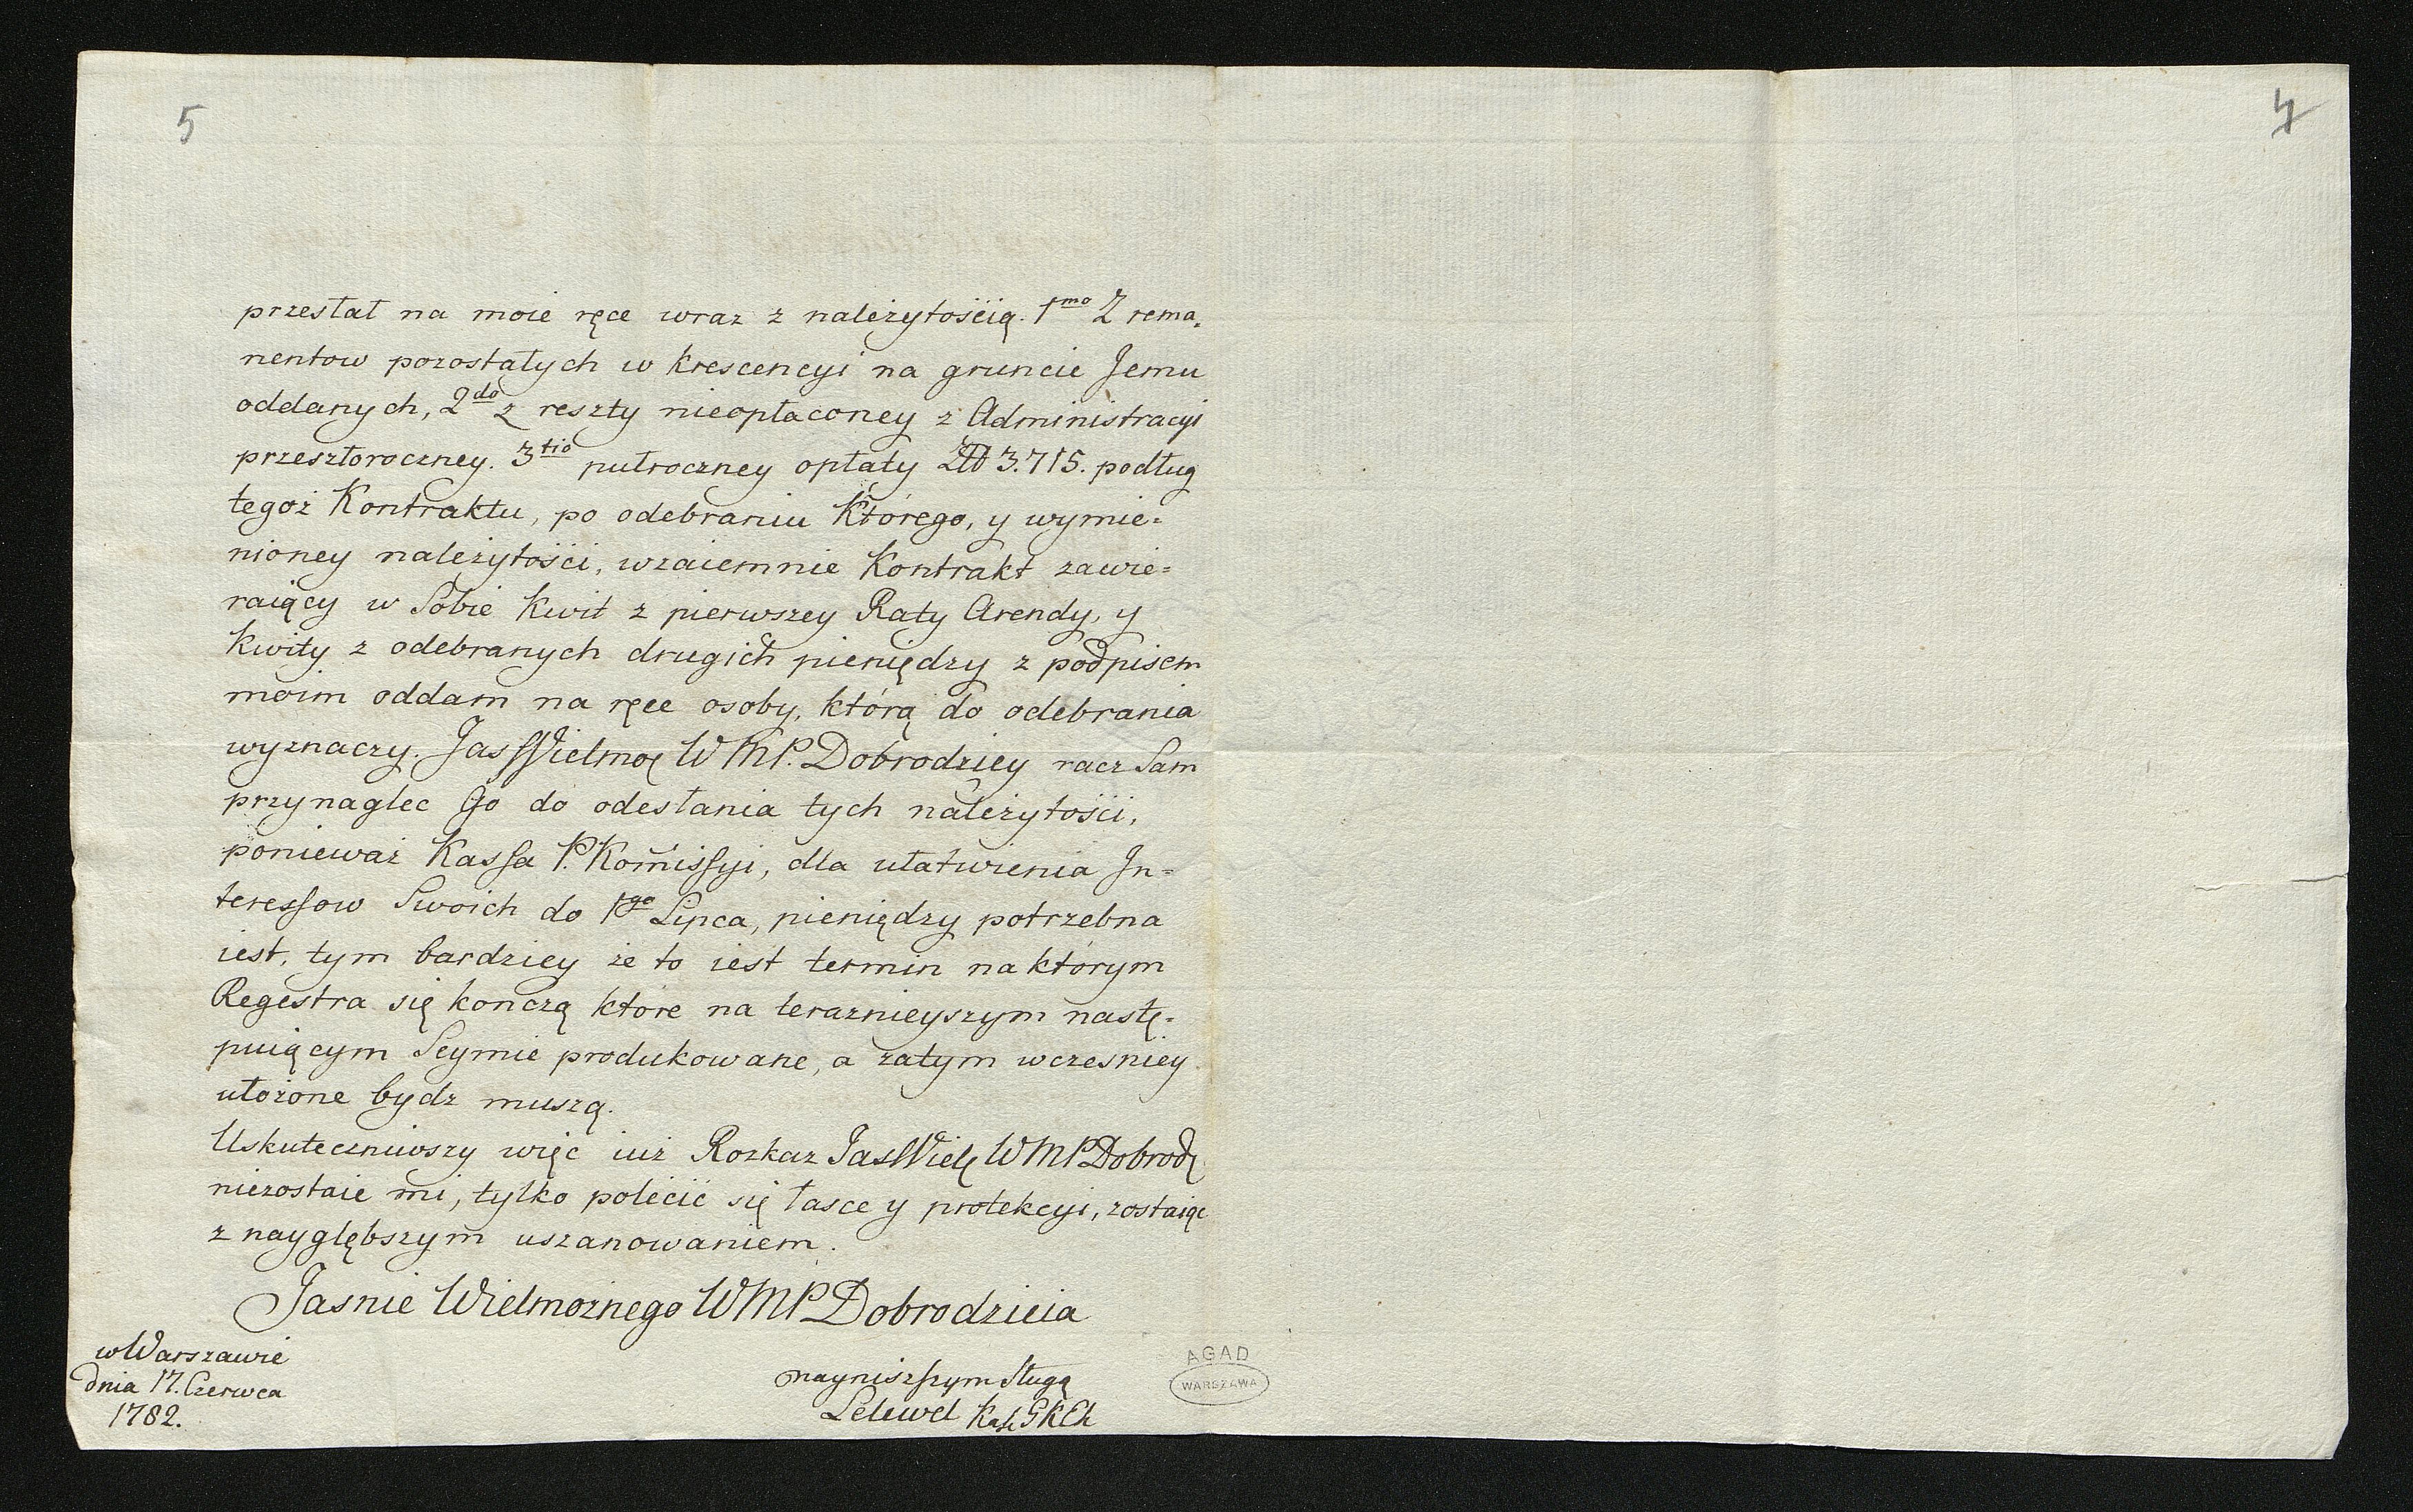 5
przesłał na moie ręce wraz z należytością. 1mo Z rema=
nentow pozostałych w krescencyi na gruncie Jemu
oddanych, 2do z reszty nieopłaconey z Administracyi
przeszłoroczney. 3tio pułroczney opłaty Zł 3.715. podług
tegoż Kontraktu, po odebraniu Którego, y wymie=
nioney należytości, wzaiemnie Kontrakt zawie=
raiący w Sobie Kwit z pierwszey Raty Arendy, y
Kwity z odebranych drugich pieniędzy z podpisem
moim oddam na ręce osoby, którą do odebrania
wyznaczy. JasWielmoż WMP. Dobrodziey racz Sam
przynaglec Go do odesłania tych należytości,
ponieważ Kassa P. Komissyi, dla ułatwienia In=
teressow Swoich do 1go Lipca, pieniędzy potrzebna
iest, tym bardziey że to iest termin na którym
Regestra się konczą które na teraznieyszym nastę=
puiącym Seymie produkowane, a zatym wczesniey
ułożone bydz muszą.
Uskuteczniwszy więc iuż Rozkaz JasWielż WMP Dobrodz
niezostaie mi, tylko polécić się łasce y protekcyi, zostaiąc
z nayglębszym uszanowaniem.
Jasnie Wielmożnego WMP Dobrodzieia
w Warszawie
dnia 17. Czerwca
1782.
nayniższym Sługą
Lelewel
AGAD
WARSZAWA